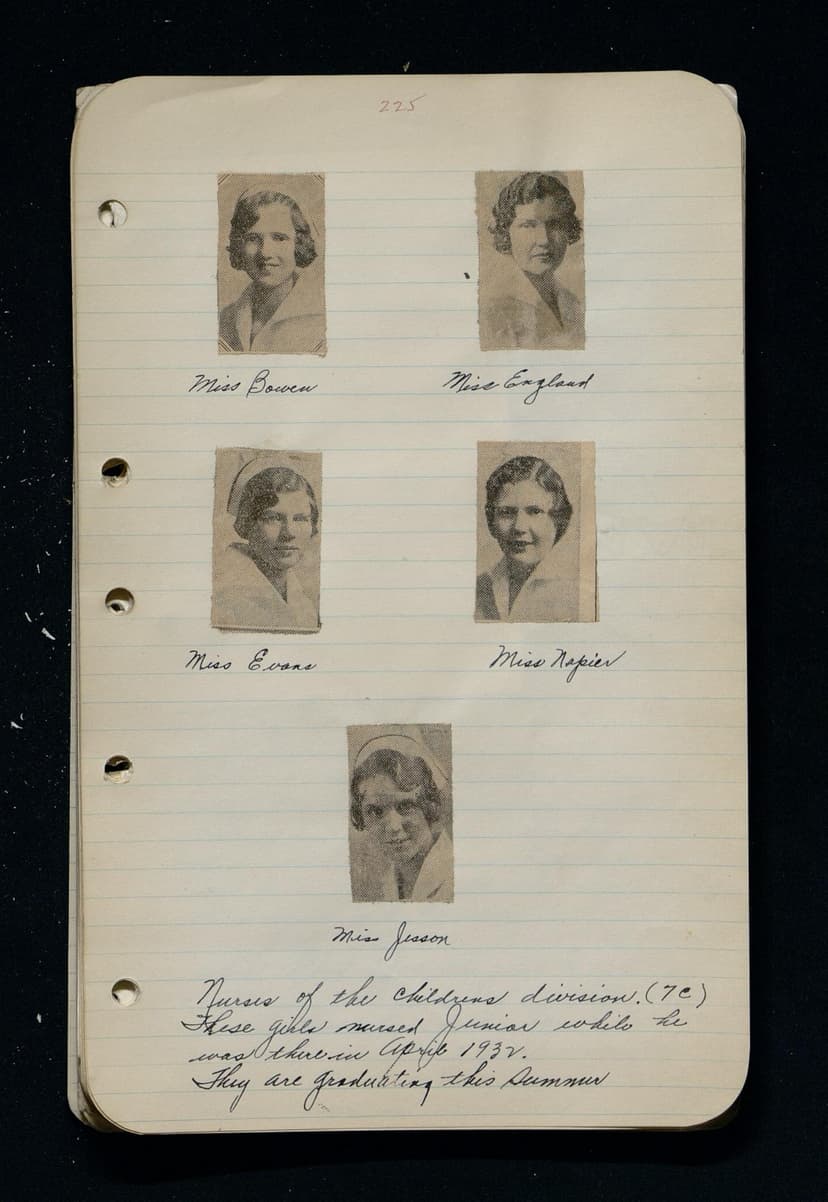 225
Miss Bowen
Miss England
Miss Evans
Miss Napier
Miss Jesson
Nurses of the childrens division. (7C)
These girls nursed Junior while he
was there in April 1932.
They are graduating this summer